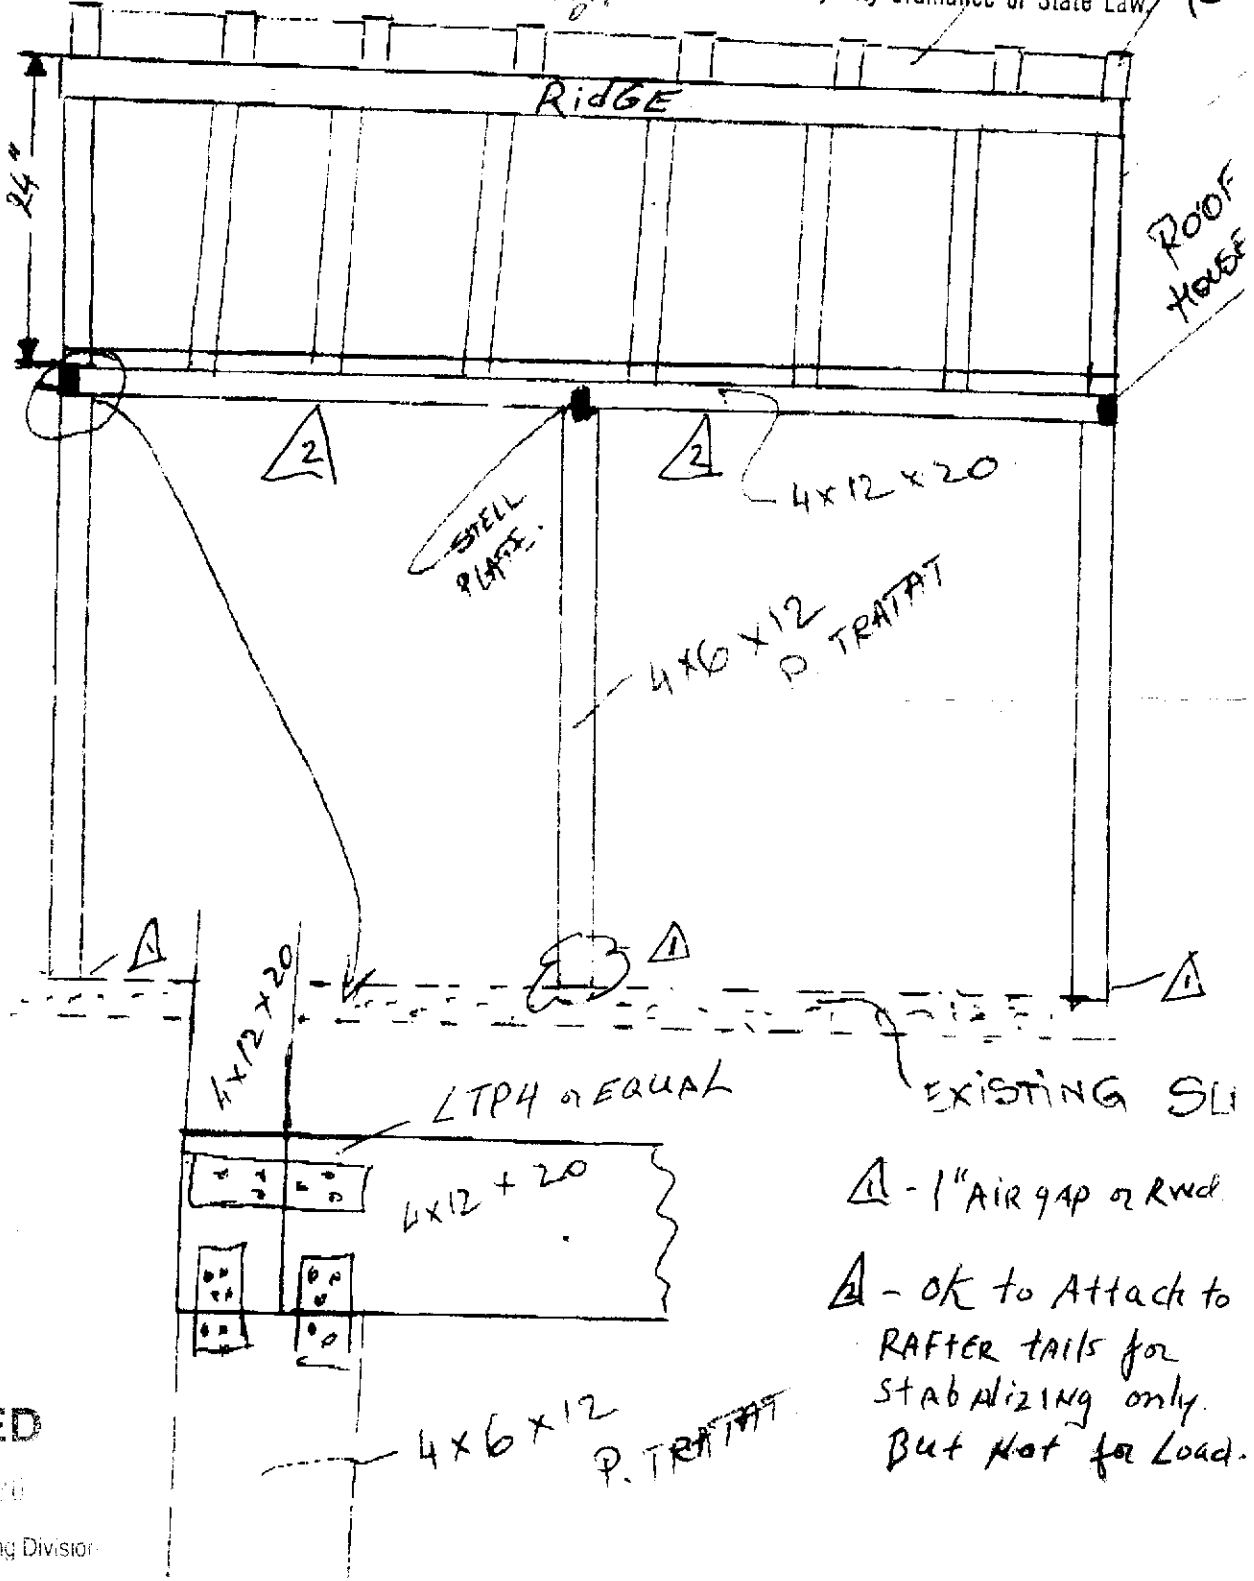 Ordinance or State Law.
RidGE
24"
ROOF
HOUSE
2
2
4x12 x 20
STELL
PLATE.
4x6 x12
P. TRATAT
1
1
1
4x12 x 20
LTP4 or EQUAL
EXISTING
4x12 + 20
1 - 1" AiR gAp or
- OK to Attach to
RAFTER tAils for
StAbAlizing only.
But Not for Load.
4 x 6 x 12
P. TRATAT
ED
Division